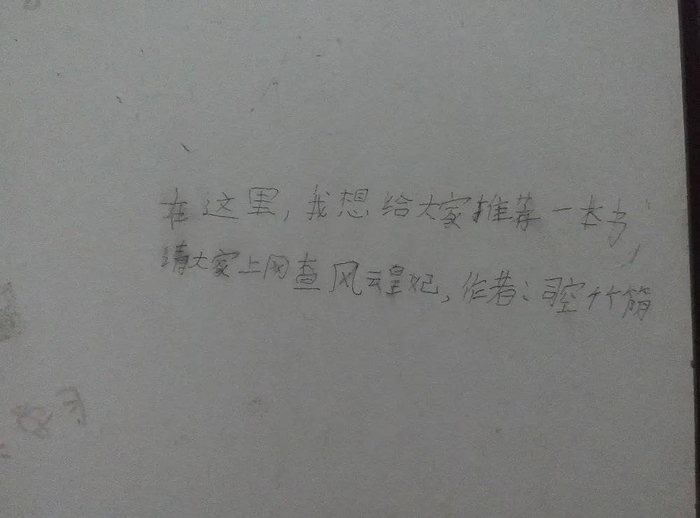 在这里,我想给大家推荐一本书,
请大家上网查风云皇妃,作者:司空竹简